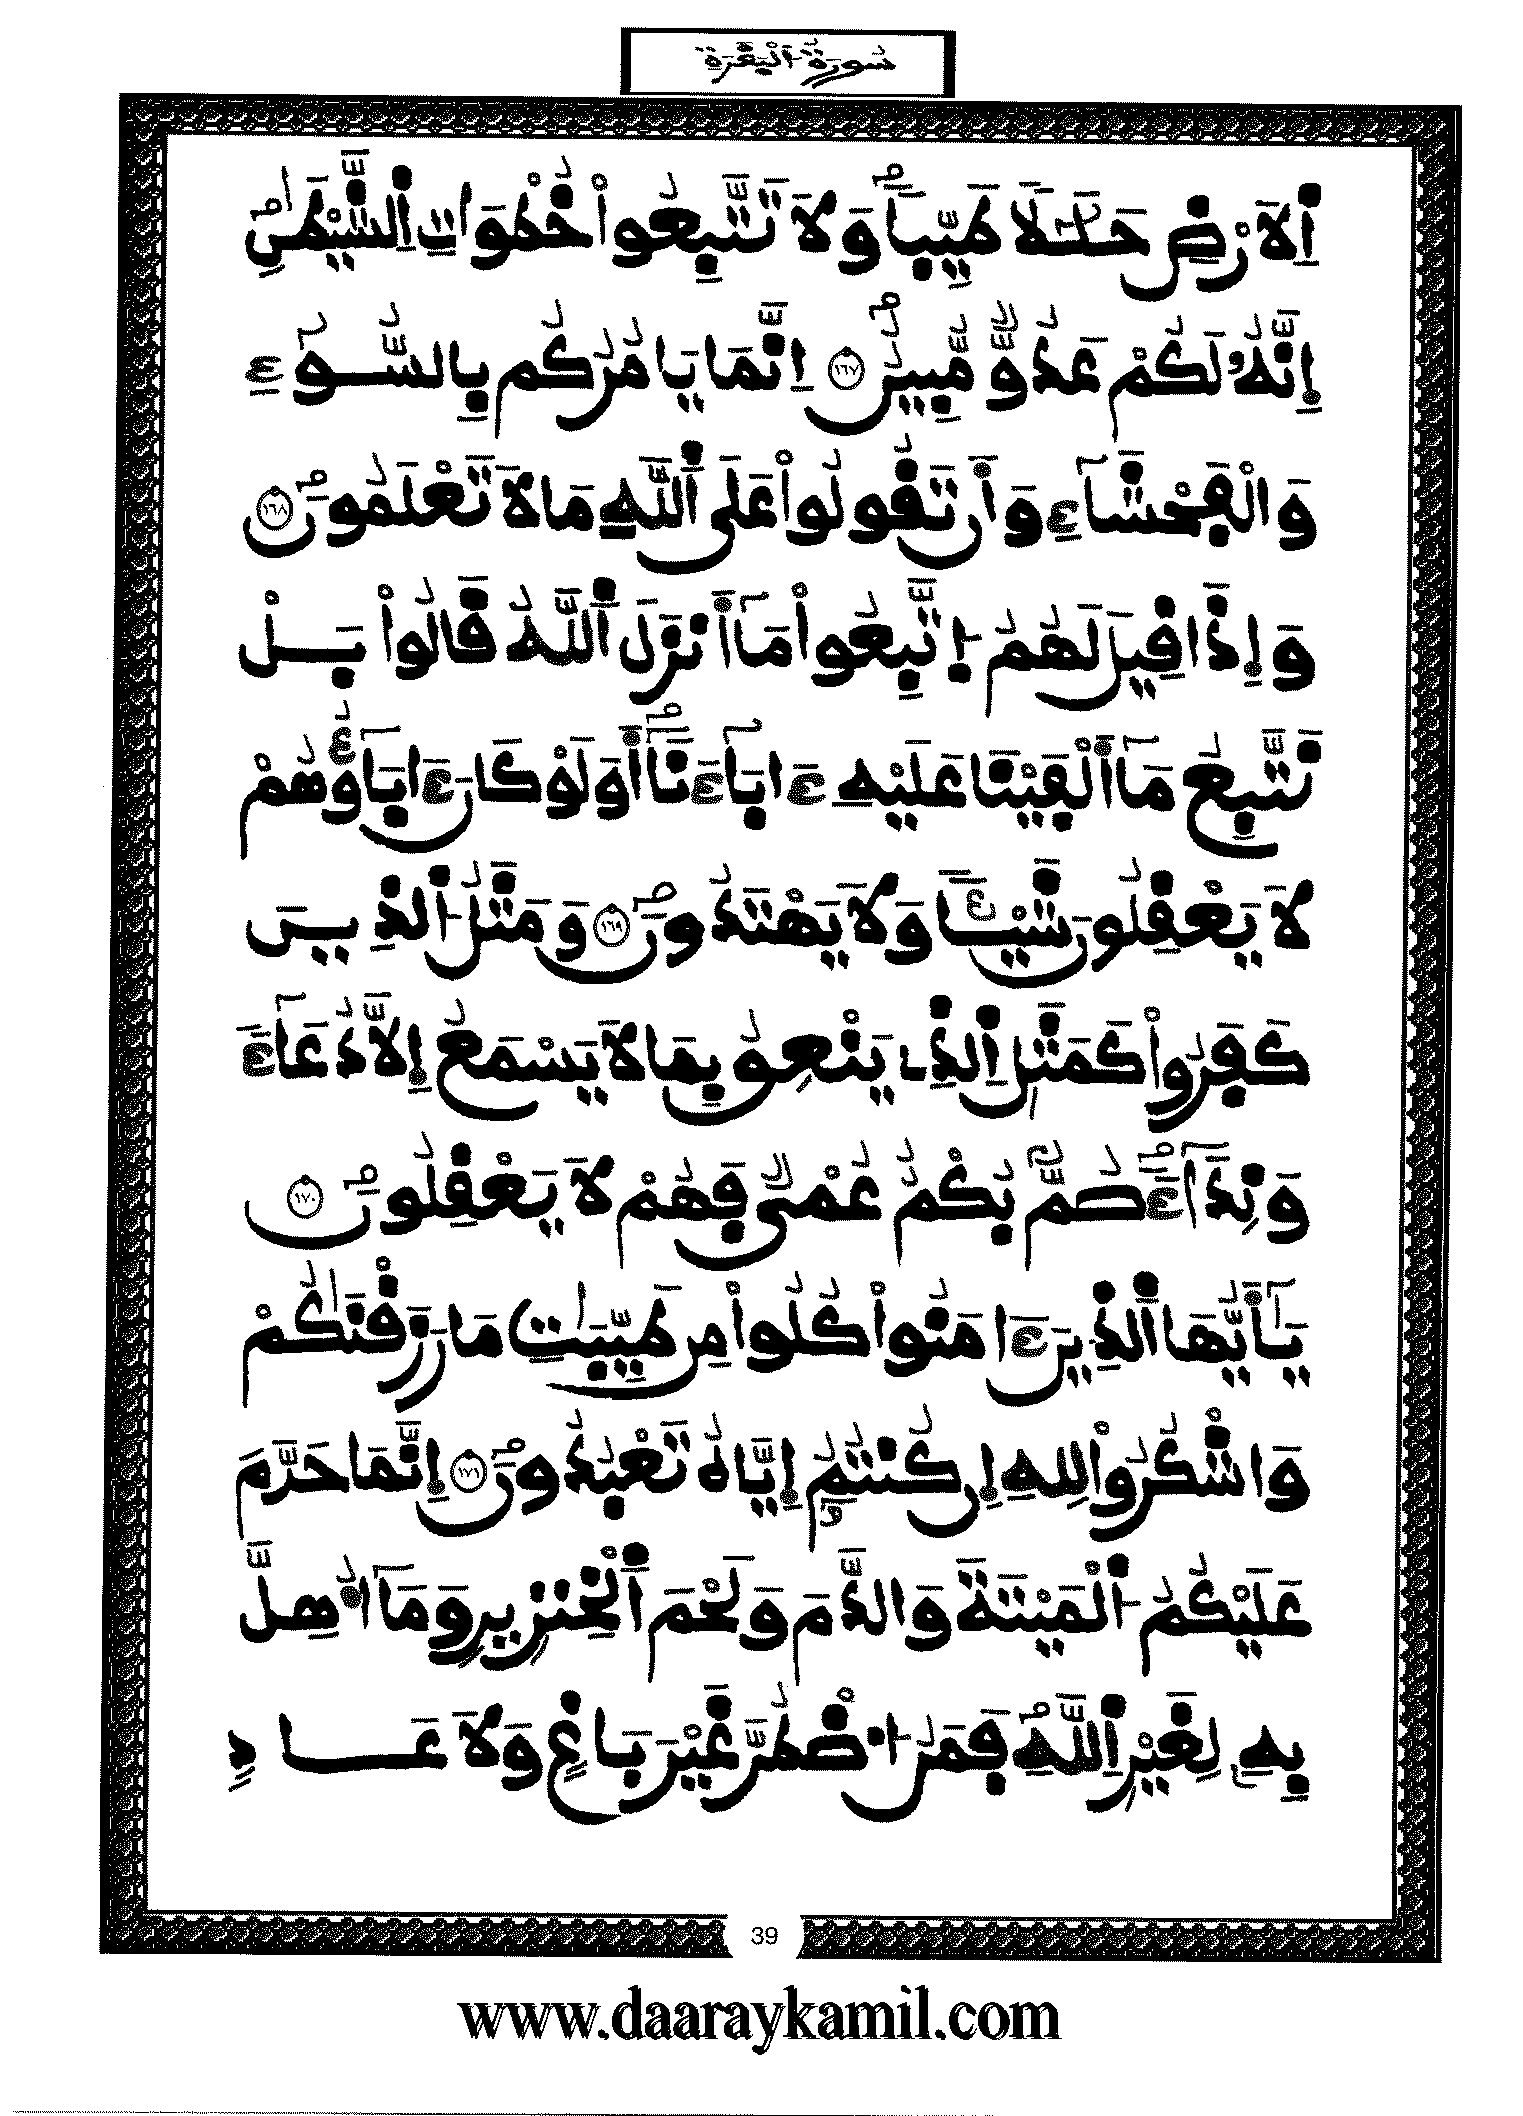 سُورَةُ اَ۬لْبَقَرَةِ
اِ۬لَارْضِ حَلَٰلاٗ طَيِّباٗ وَلَا تَتَّبِعُواْ خُطْوَٰتِ اِ۬لشَّيْطَٰنِ
إِنَّهُۥ لَكُمْ عَدُوّٞ مُّبِينٌ ١٦٧ اِنَّمَا يَامُرُكُم بِالسُّوٓءِ
وَالْفَحْشَآءِ وَأَن تَقُولُواْ عَلَى اَ۬للَّهِ مَا لَا تَعْلَمُونَ ١٦٨
وَإِذَا قِيلَ لَهُمُ اُ۪تَّبِعُواْ مَآ أَنزَلَ اَ۬للَّهُ قَالُواْ بَلْ
نَتَّبِعُ مَآ أَلْفَيْنَا عَلَيْهِ ءَابَآءَنَآ أَوَلَوْ كَانَ ءَابَآؤُهُمْ
لَا يَعْقِلُونَ شَيْـٔاٗ وَلَا يَهْتَدُونَ ١٦٩ وَمَثَلُ اُ۬لذِينَ
كَفَرُواْ كَمَثَلِ اِ۬لذِے يَنْعِقُ بِمَا لَا يَسْمَعُ إِلَّا دُعَآءٗ
وَنِدَآءٗ صُمُّۢ بُكْمٌ عُمْيٞ فَهُمْ لَا يَعْقِلُونَ ١٧٠
يَٰٓأَيُّهَا اَ۬لذِينَ ءَامَنُواْ كُلُواْ مِن طَيِّبَٰتِ مَا رَزَقْنَٰكُمْ
وَاشْكُرُواْ لِلهِ إِن كُنتُمُۥٓ إِيَّاهُ تَعْبُدُونَ ١٧١ إِنَّمَا حَرَّمَ
عَلَيْكُمُ اُ۬لْمَيْتَةَ وَالدَّمَ وَلَحْمَ اَ۬لْخِنزِيرِ وَمَآ أُهِلَّ
بِهِۦ لِغَيْرِ اِ۬للَّهِ فَمَنُ اُ۟ضْطُرَّ غَيْرَ بَاغٖ وَلَا عَادٖ
39
www.daaraykamil.com